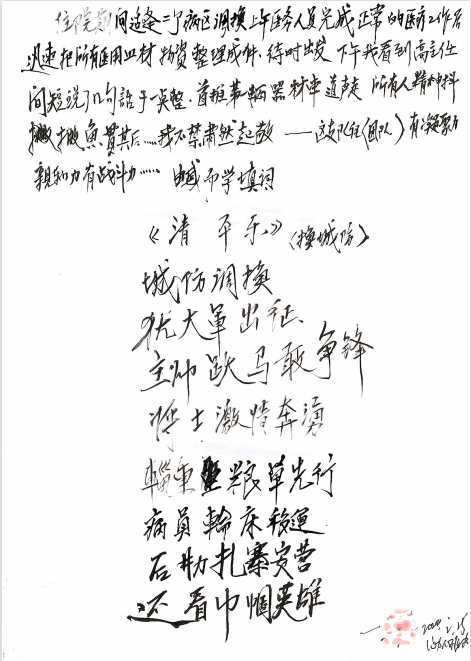 住院期间适逢二个病区调换上午医务人员完成正常的医疗工作后
迅速把所有医用血材物资整理成件.待时出发 下午我看到高主任
简短说了几句话于一英整.首推第一辆器材车道声走 所有人精神抖
擞鱼贯其后.....我不禁肃然起敬——这支队伍(团队)有凝聚力
亲和力有战斗力...... 有感而学填词
《清平乐》(换城防)
城防调换
犹大军出征、
主帅跃马敢争锋
将士激情奔涌
辎重粮草先行
病员轮床移运
后勤扎寨安营
还看巾帼英雄